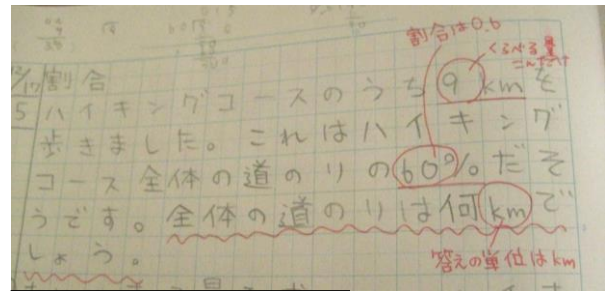 割合は0.6
くらべる量
12/17 割合
5 ハイキングコースのうち9kmを
歩きました。これはハイキング
コース全体の道のりの60%だそ
うです。全体の道のりは何kmで
しょう。
答えの単位はkm